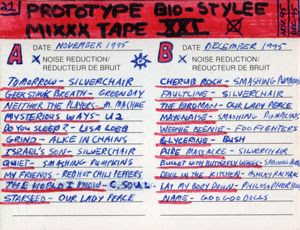 21
PROTOTYPE BIO-STYLEE
MIXXX TAPE XXI
NOV 95
A
DATE NOVEMBER 1995
NOISE REDUCTION/
RÉDUCTEUR DE BRUIT
TOMORROW - SILVERCHAIR
GEEK STINK BREATH - GREEN DAY
NEITHER THE PLAYERS - M. MACHINE
MYSTERIOUS WAYS - U2
DO YOU SLEEP? - LISA LOEB
GRIND - ALICE IN CHAINS
ISRAEL'S SON - SILVERCHAIR
QUIET - SMASHING PUMPKINS
MY FRIENDS - RED HOT CHILI PEPPERS
THE WORLD I KNOW - C. SOUL
STARSEED - OUR LADY PEACE
B
DATE DECEMBER 1995
NOISE REDUCTION/
RÉDUCTEUR DE BRUIT
CHERUB ROCK - SMASHING PUMPKINS
FAULTLINE - SILVERCHAIR
THE BIRDMAN - OUR LADY PEACE
MAYONAISE - SMASHING PUMPKINS
WEENIE BEENIE - FOO FIGHTERS
GLYCERINE - BUSH
PURE MASSACRE - SILVERCHAIR
BULLET WITH BUTTERFLY WINGS - SMASHING
DEVIL IN THE KITCHEN - ASHLEY MACISAAC
LAY MY BODY DOWN - PHILOSOPHER KINGS
NAME - GOO GOO DOLLS